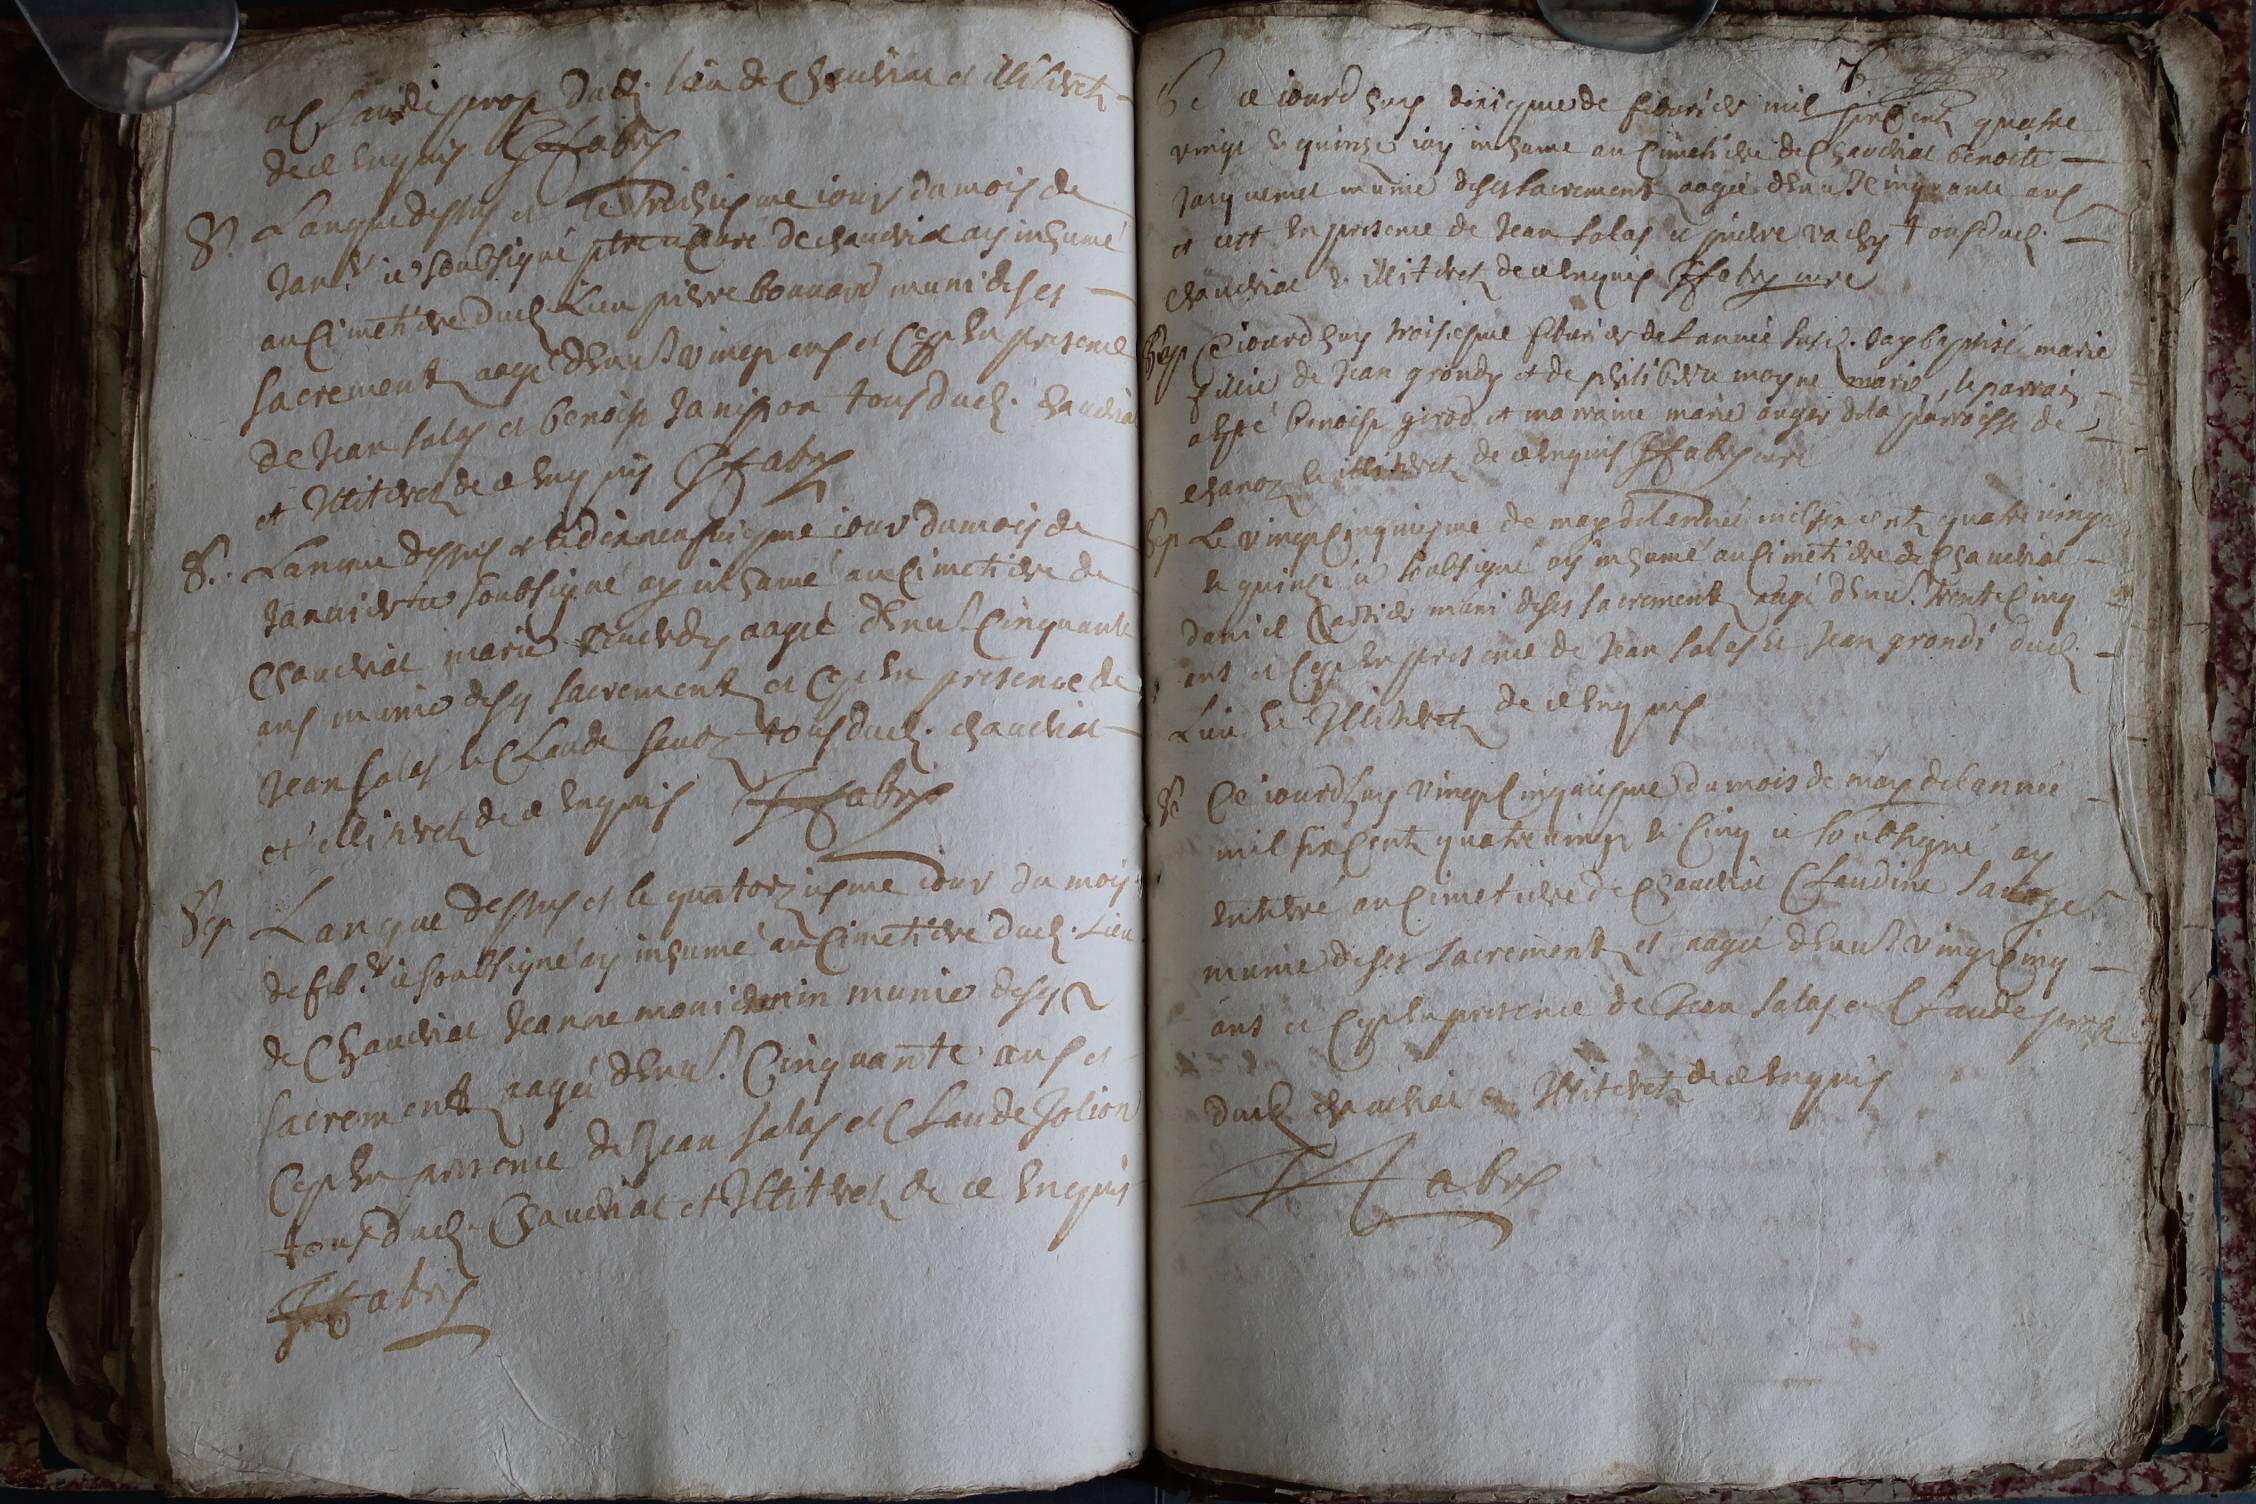 et Claude prop dud. lieu de Chaudiat et illiterez
de ce enquis JFabry
S. L'an que dessus et le troisiesme iour du mois de
Janr. ie soubsigné ptre curé de chaudiat ay inhumé
au Cimetiere dud. Lieu pierre bonnard muni de ses
sacrements aagé denv. vingt ans et Cep en presence
de Jean salas et benoist Janisson tous dud. chaudiat
et Illiterez de ce enquis JFabry
S. L'an que dessus et le dixneufviesme iour du mois de
Januier ie soubsigné ay inhumé au Cimetiere de
Chaudiat marie aagée denv. Cinquante
ans munie de sés sacrements et Cep en presence de
Jean salas et Claude tous dud. chaudiat
et illiterez de ce enquis JFabry
Sep L'an que dessus et le quatorziesme iour du mois
de feb. ie soubsigné ay inhumé au Cimetiere dud. Lieu
de Chaudiat Jeanne munie de sés
sacrements aagée denv. Cinquante ans et
Cep en presence de Jean salas et Claude Jolion
tous dud. Chaudiat et Illiterez de ce enquis
JFabry
7
Se ce iourdhuy de feburier mil six Cents quatre
vingt et quinze iay inhumé au Cimetiere de Chaudiat benoite
Jacquemet munie de ses sacrements aagée denv. cinquante ans
et cett en presence de Jean salas et pierre vachy tous dud.
chaudiat et illiterez de ce enquis JFabry curé
Bap Ce iourdhuy troisiesme feburier de Lannée susd. iay baptisé marie
fillie de Jean grondy et de philiberte moyne mariés, le parrain
a esté benoist girod et marraine marie auger de la parroisse de
chanoz et illiterez de ce enquis JFabry curé
Sep Le vingt Cinquiesme de may de lannée mil six cents quatre vingt
et quinze ie soubsigné ay inhumé au Cimetiere de Chaudiat
daniel muni de ses sacrements aagé denv. trente Cinq
ans et Cep en presence de Jean salas et Jean grondi dud.
Lieu et Illiterez de ce enquis
Se Ce iourdhuy vingt Cinquiesme du mois de may de lannée
mil six Cents quatre vingt et Cinq ie soubsigné ay
enterré au Cimetiere de Chaudiat Claudine
munie de ses sacrements et aagée denv. vingt Cinq
ans et Cep en presence de Jean salas et Claude prop
dud. chaudiat et Illiterez de ce enquis
JFabry